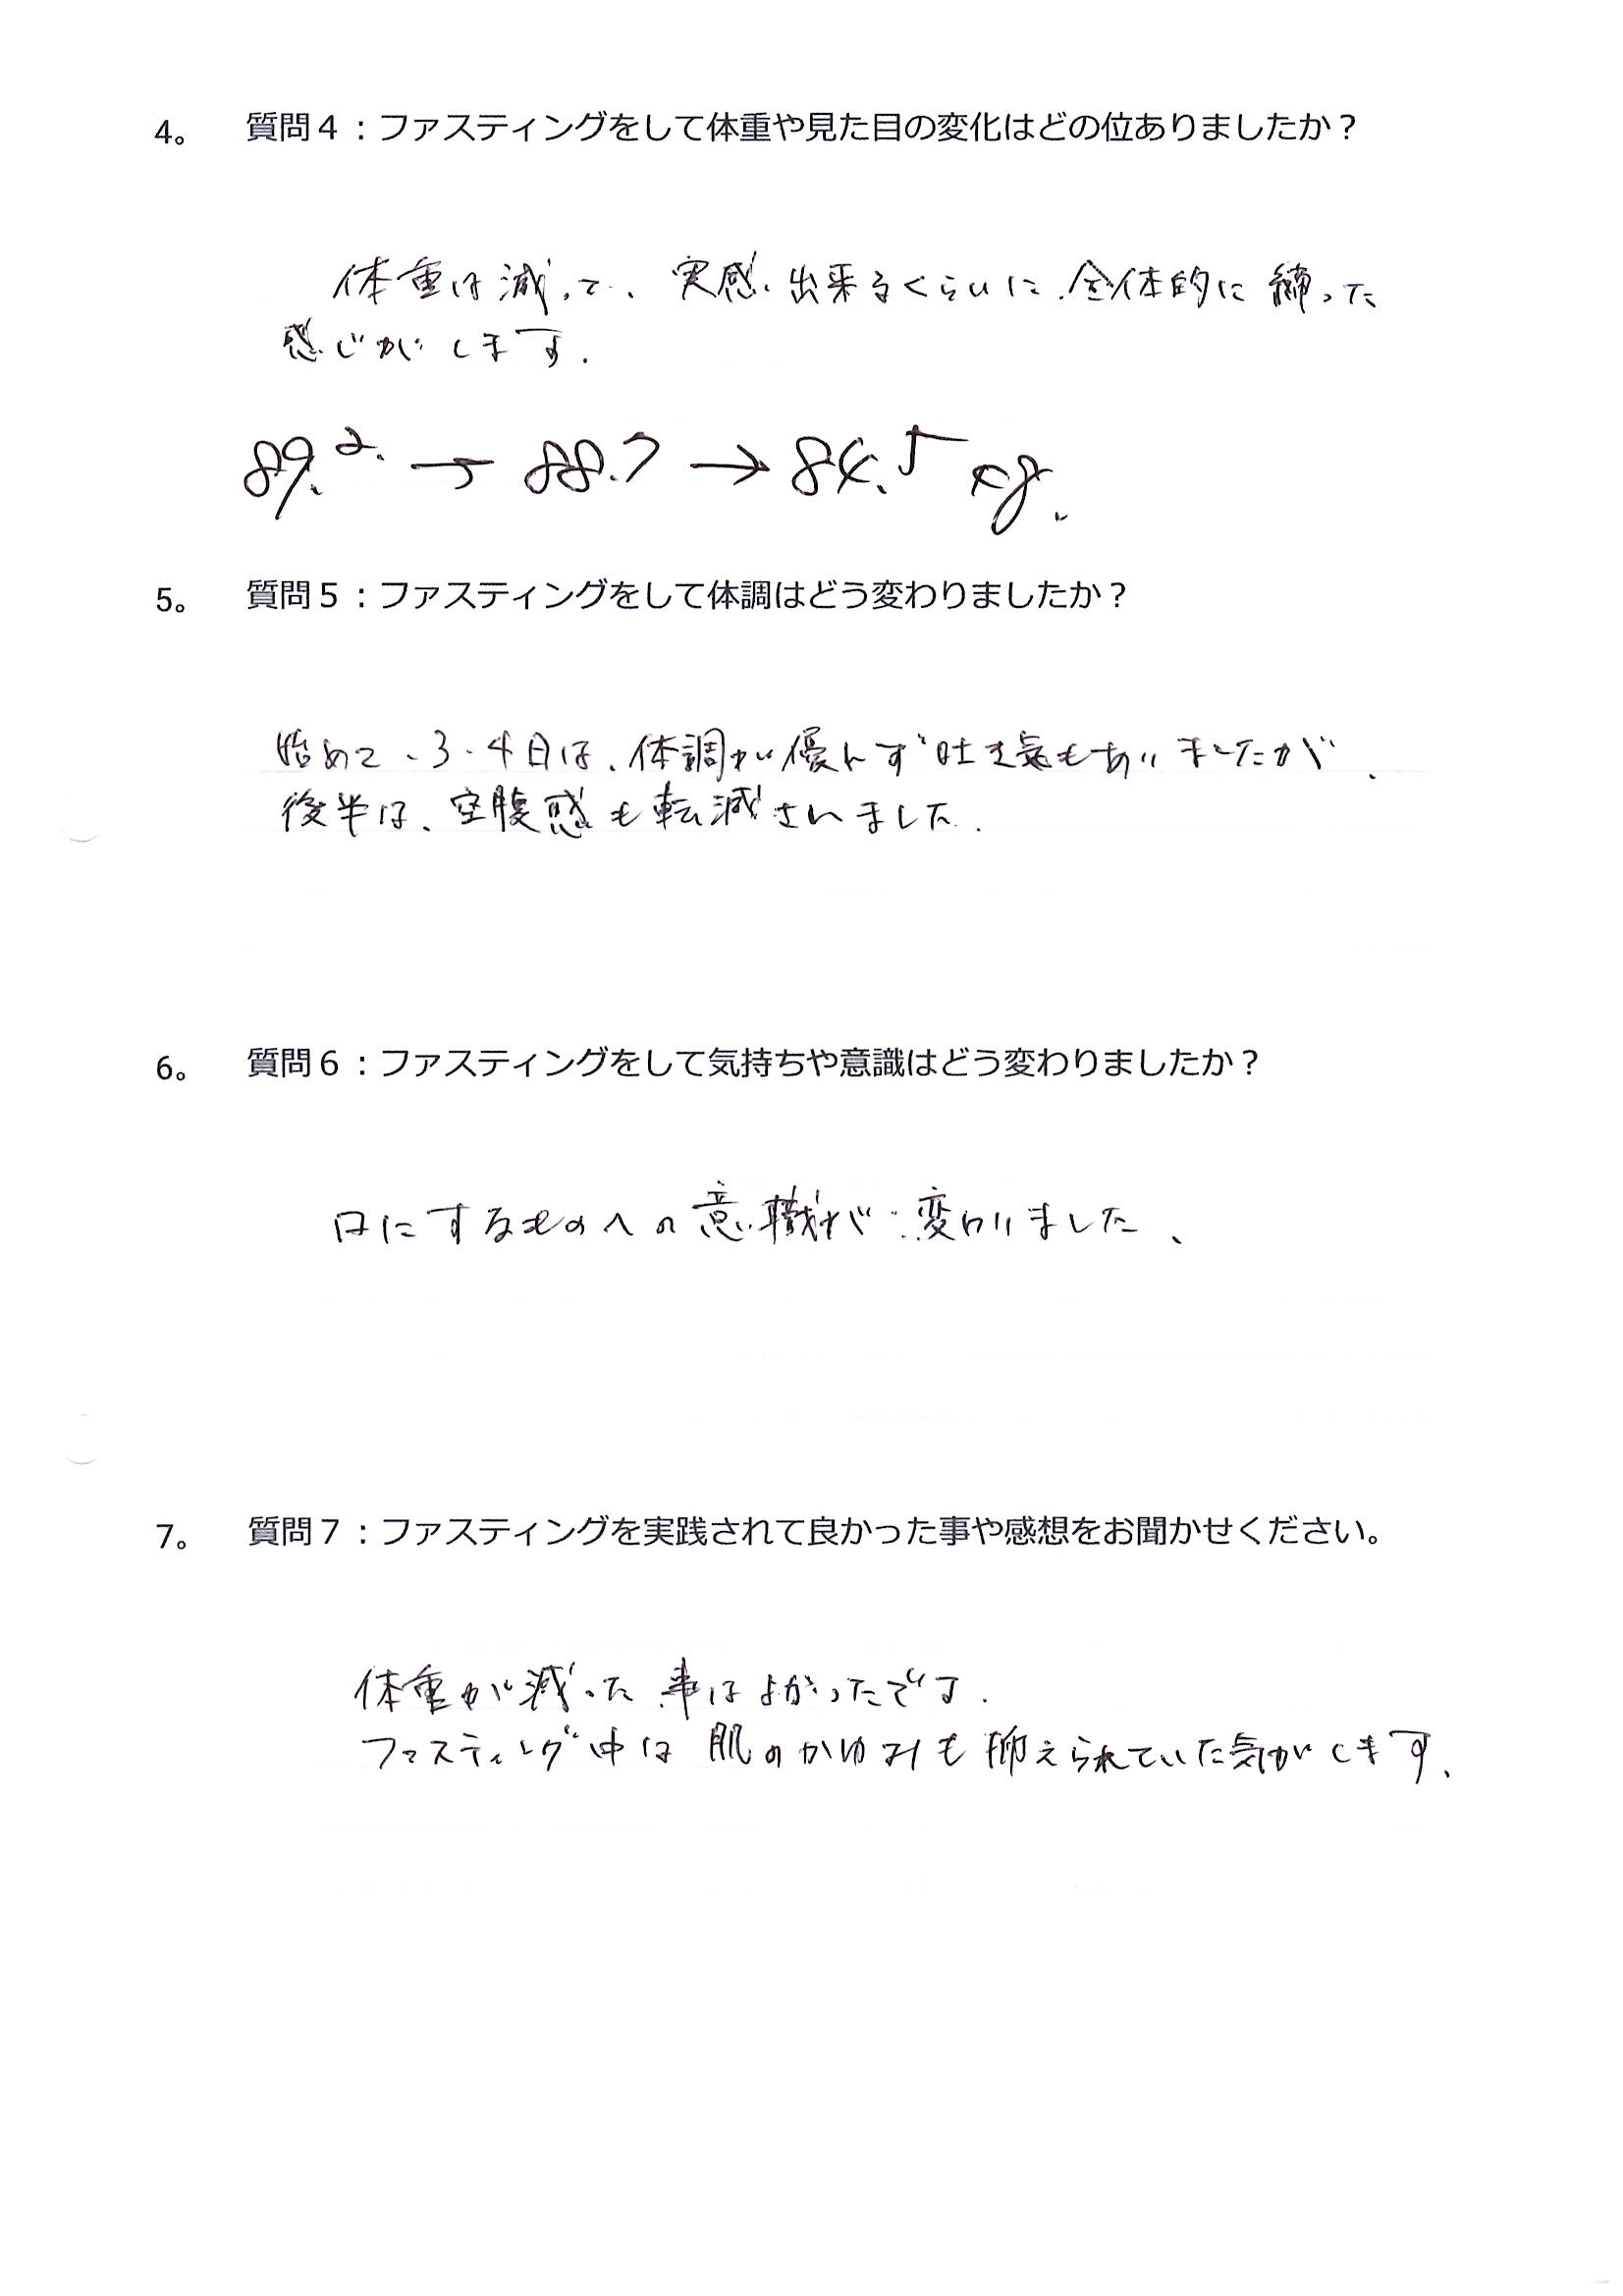 4。 質問４：ファスティングをして体重や見た目の変化はどの位ありましたか？
体重は減って、実感出来るくらいに、全体的に締った
感じがします.
89.2. → 88.7 → 84.5 kg.
5。 質問５：ファスティングをして体調はどう変わりましたか？
始めて、3・4日は、体調が優れず吐き気もありましたが、
後半は、空腹感も転減されました.
6。 質問６：ファスティングをして気持ちや意識はどう変わりましたか？
口にするものへの意職が変わりました、
7。 質問７：ファスティングを実践されて良かった事や感想をお聞かせください。
体重が減った事はよかったです.
ファスティング中は肌のかゆみも抑えられていた気がします、